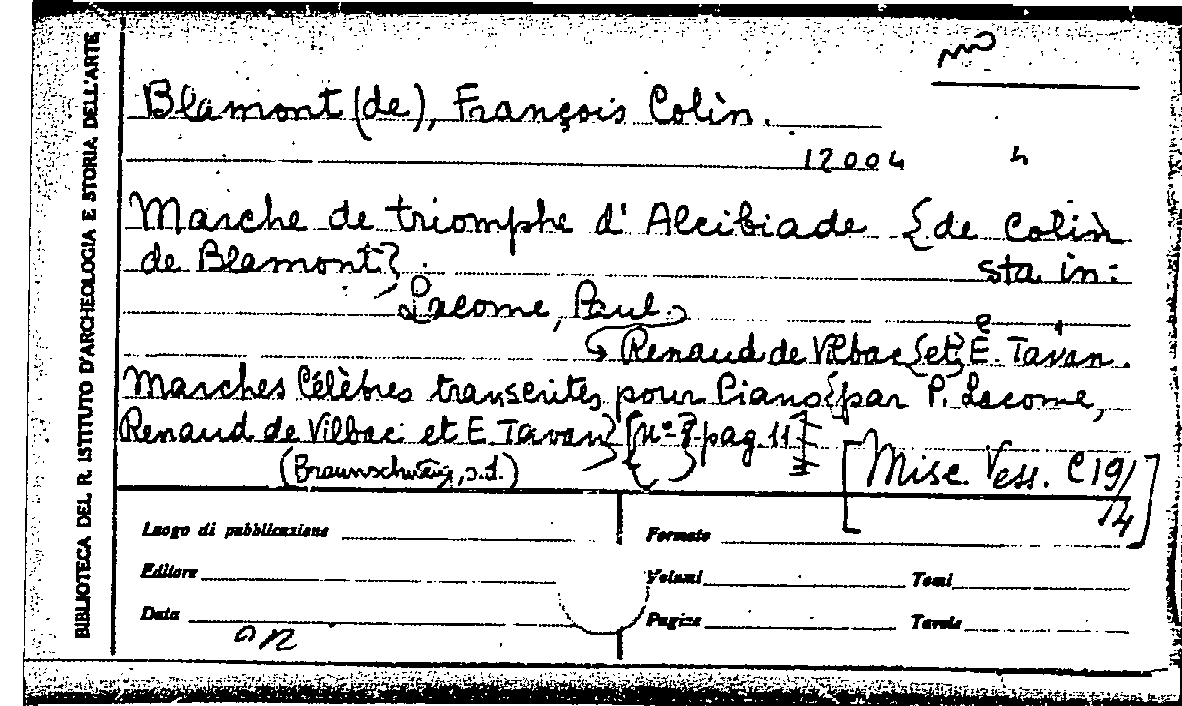 BIBLIOTECA DEL R. ISTITUTO D'ARCHEOLOGIA E STORIA DELL'ARTE
Blamont (de), François Colin.
12004 4
Marche de triomphe d'Alcibiade {de Colin
de Blamont}. sta in:
Lacome, Paul
Renaud de Vilbac {et} E. Tavan.
Marches Célèbres transcrites pour Piano {par P. Lacome,
Renaud de Vilbac et E. Tavan} [nº 8 pag. 11]
(Braunschweig, s.d.)
[Misc. Vess. C 19/
/4]
Luogo di pubblicazione Formato
Editore Volumi Tomi
Data Pagine Tavole